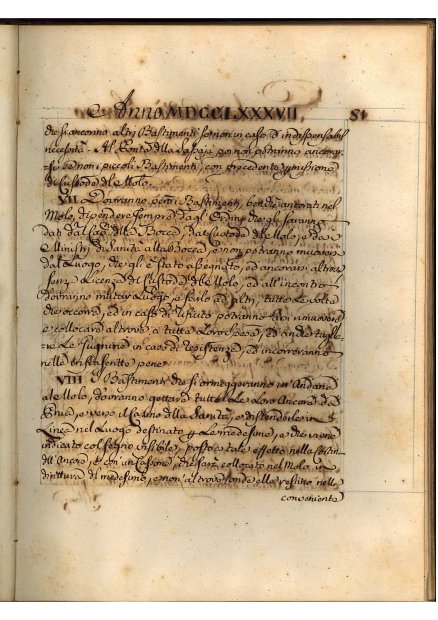 Anno MDCCLXXXVII 81
che si anconno altri Bastimenti se non in caso d'indispensabil
necessità. Al Ponte della non potranno ancorar-
si se non i piccoli Bastimenti, con precedente permissione
del Custode del Molo.
VII Dovranno però i Bastimenti, benche ancorati nel
Molo, dipendere sempre dagl' Ordini, che gli saranno
dati dal Capo della Bocca, dal Custode del Molo, e da
Ministri di Sanità alla Bocca, e non potranno muoversi
dal Luogo, che gli è stato assegnato, ed ancorarsi altrove
senz Licenza del Custode del Molo, ed all'incontro
dovranno mutar Luogo, e farlo ad altri, tutte le volte
che occorra, ed in caso di rifiuto potranno farsi rimuovere
e collocare altrove a tutte Loro spese, ed anche taglia-
re Le Gumine in caso di resistenza, ed incorreranno
nelle trascritte pene.
VIII I Bastimenti che si ormeggeranno in Andana
al Molo, dovranno gettare tutte le Loro Ancore da
e verso il Casino della Sanità, e distenderle in
Linea nel Luogo destinato Le medesime, e che viene
indicato col segno visibile, posto a tale effetto nella
dell' Ancora, e con un che sarà collocato nel Molo, in
dirittura di medesimo, e non altrove
conveniente